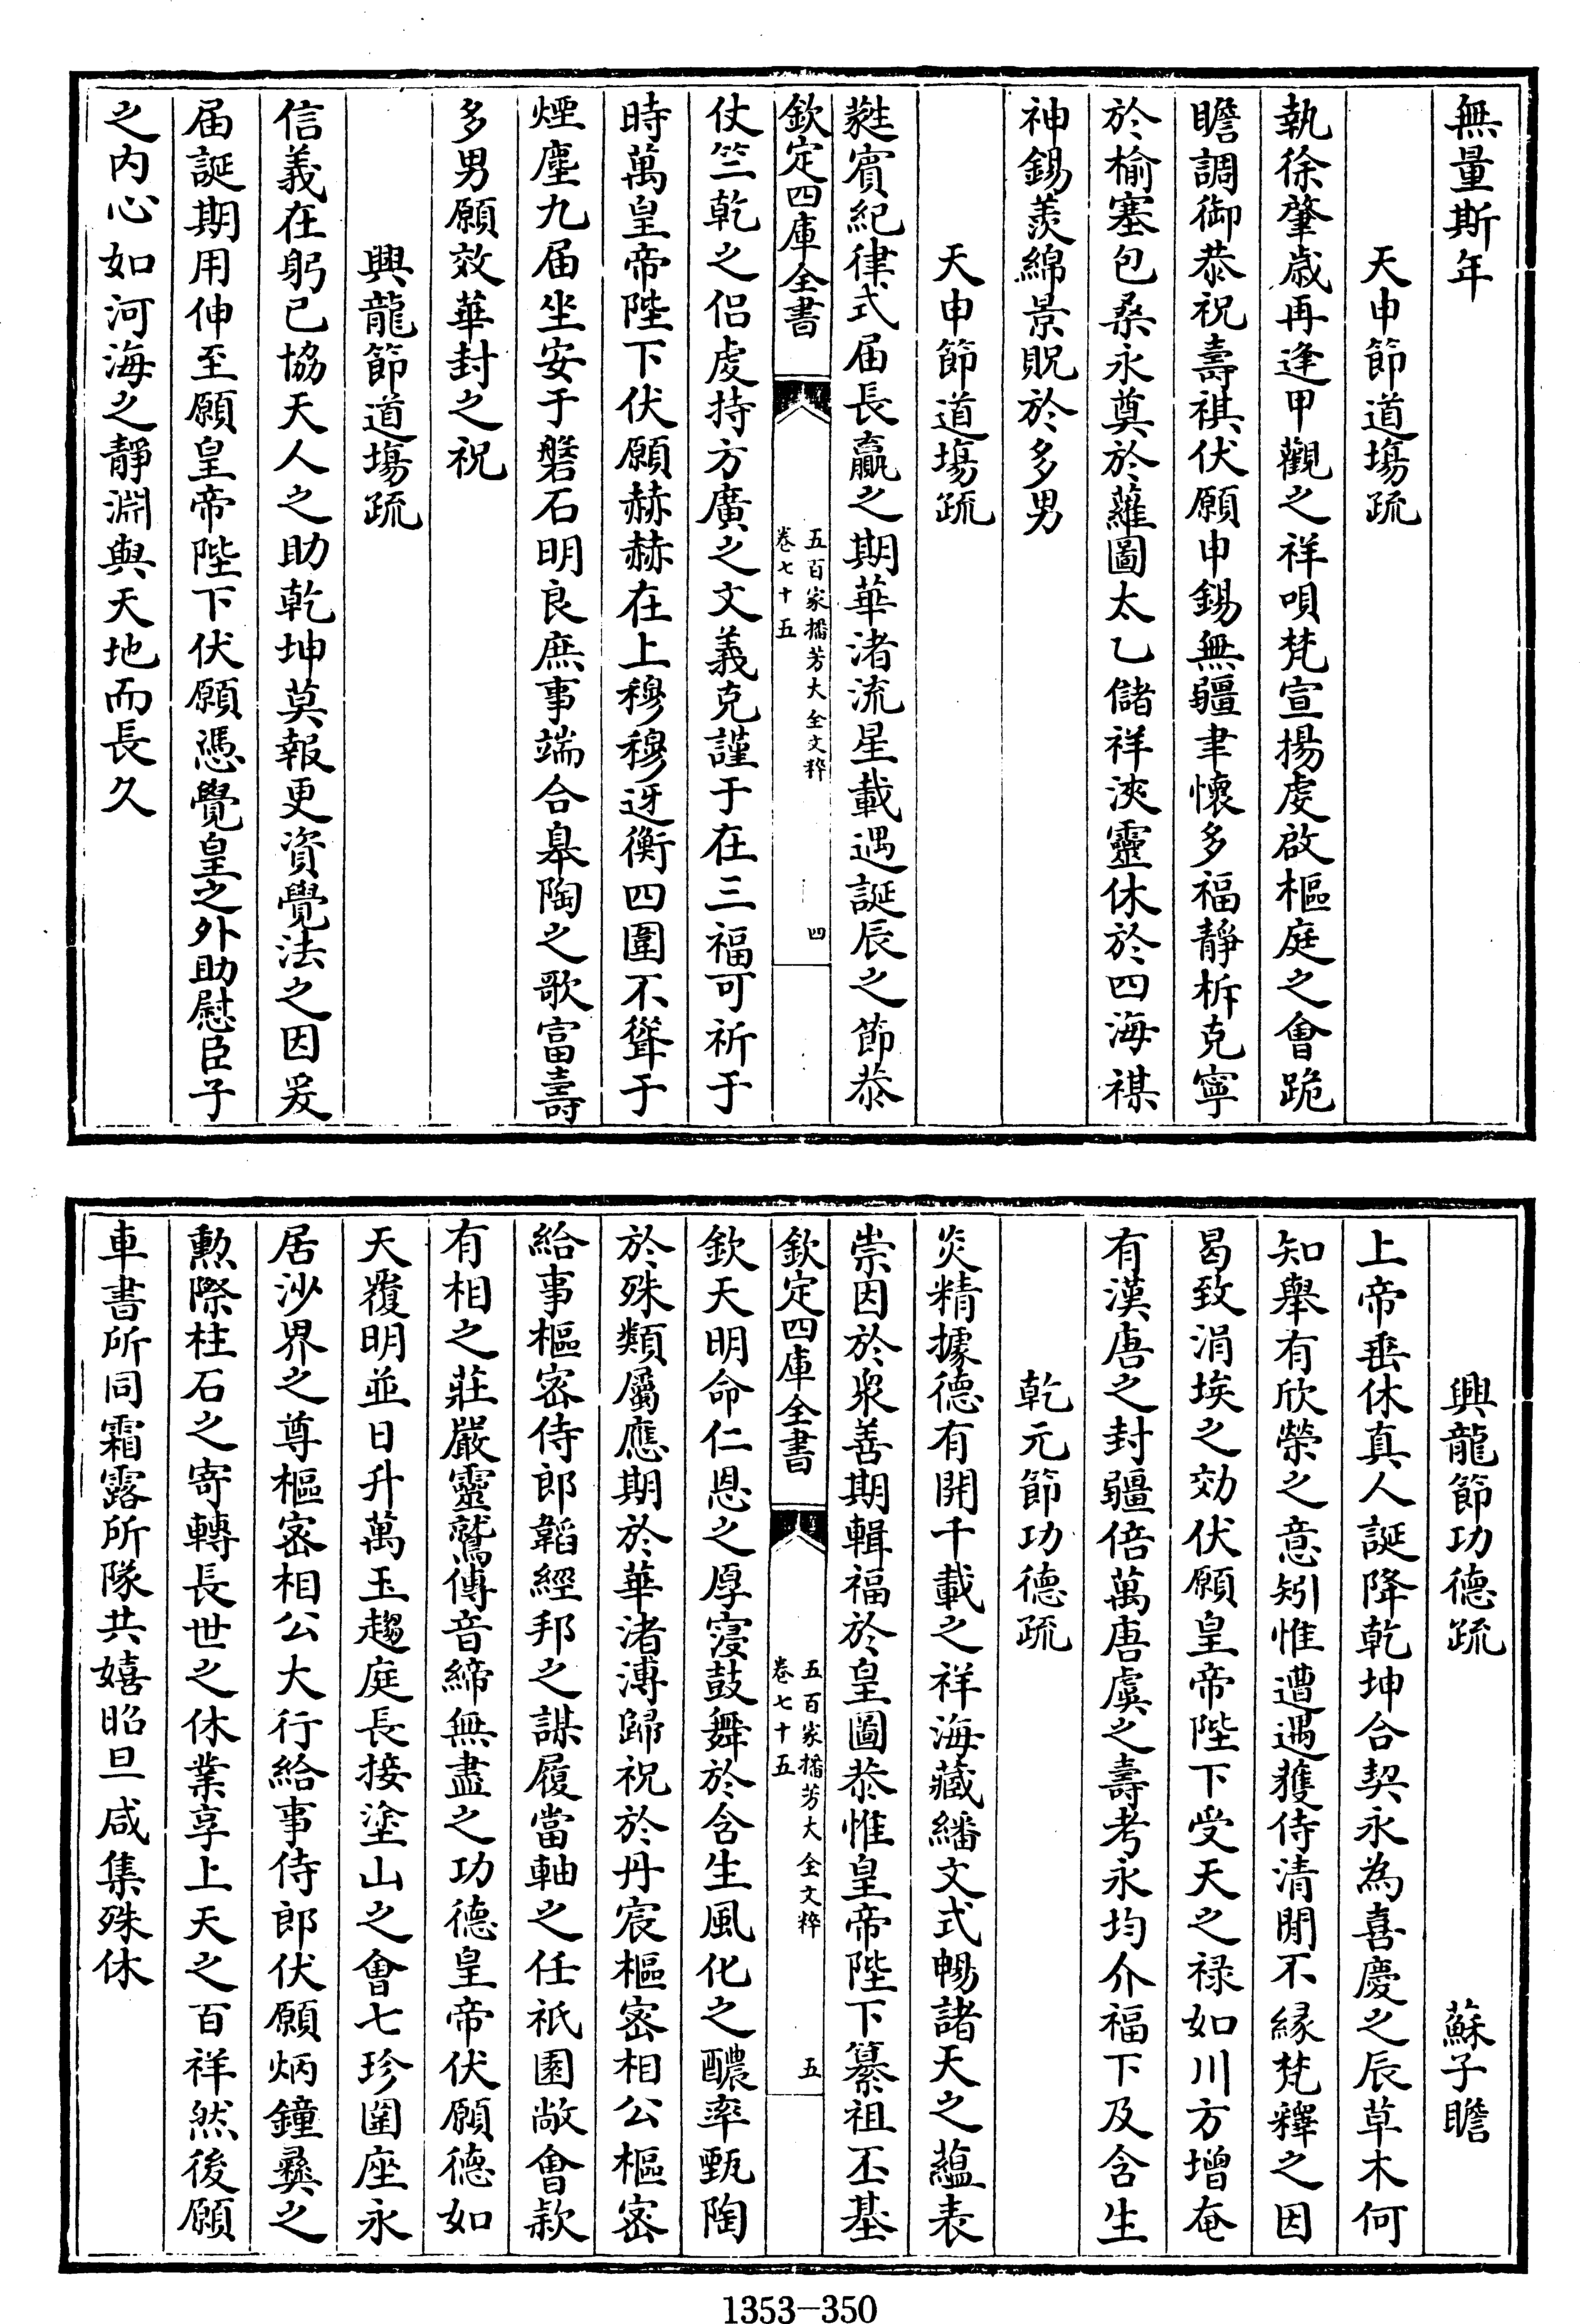 無量斯年
天申節道塲疏
執徐肇歳再逢甲觀之祥唄梵宣揚虔啟樞庭之會跪
瞻調御恭祝壽祺伏願申錫無疆聿懷多福靜柝克寧
於榆塞包桑永奠於蘿圖太乙儲祥浹靈休於四海禖
神錫羨綿景貺於多男
天申節道塲疏
蕤賓紀律式届長贏之期華渚流星載遇誕辰之節恭
欽定四庫全書
五百家播芳大全文粹
卷七十五
四
仗竺乾之侣虔持方廣之文義克謹于在三福可祈于
時萬皇帝陛下伏願赫赫在上穆穆迓衡四圍不聳于
煙塵九届坐安于磐石明良庶事端合皋陶之歌富壽
多男願效華封之祝
興龍節道塲疏
信義在躬已協天人之助乾坤莫報更資覺法之因爰
届誕期用伸至願皇帝陛下伏願憑覺皇之外助慰臣子
之内心如河海之靜淵與天地而長久
興龍節功德疏
蘇子瞻
上帝垂休真人誕降乾坤合契永為喜慶之辰草木何
知舉有欣榮之意矧惟遭遇獲侍清閒不縁梵釋之因
曷致涓埃之効伏願皇帝陛下受天之禄如川方增奄
有漢唐之封疆倍萬唐虞之壽考永均介福下及含生
乾元節功德疏
炎精據德有開千載之祥海藏繙文式暢諸天之蘊表
崇因於衆善期輯福於皇圖恭惟皇帝陛下纂祖丕基
欽定四庫全書
五百家播芳大全文粹
卷七十五
五
欽天明命仁恩之厚寖鼓舞於含生風化之醲率甄陶
於殊類屬應期於華渚溥歸祝於丹宸樞密相公樞密
給事樞密侍郎韜經邦之謀履當軸之任祇園敞會款
有相之莊嚴靈鷲傳音締無盡之功德皇帝伏願德如
天覆明並日升萬玉趨庭長接塗山之會七珍圍座永
居沙界之尊樞密相公大行給事侍郎伏願炳鐘彝之
勲際柱石之寄轉長世之休業享上天之百祥然後願
車書所同霜露所隊共嬉昭旦咸集殊休
1353-350